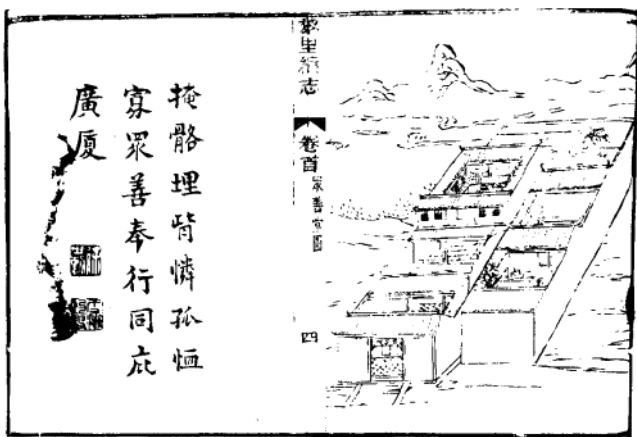 黎里續志
卷首
眾善堂圖
四
掩骼埋胔憐孤恤
寡眾善奉行同庇
廣厦